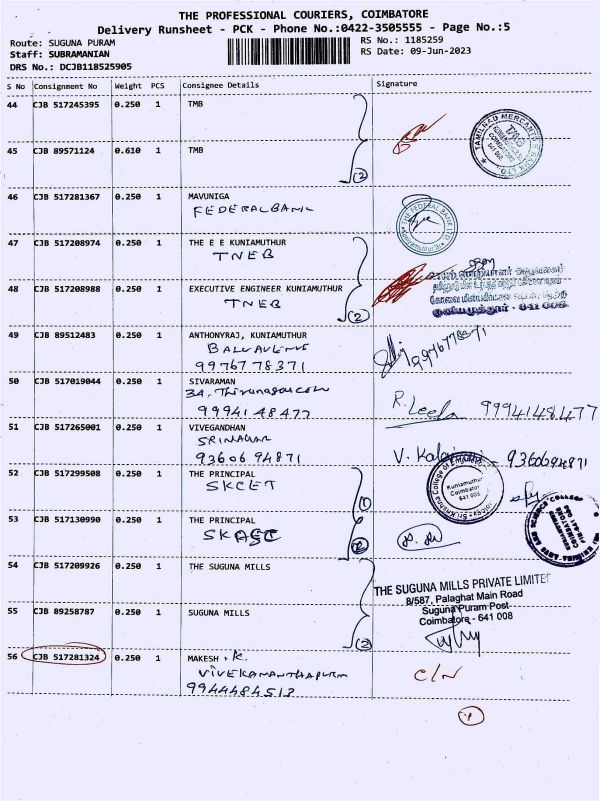 THE PROFESSIONAL COURIERS, COIMBATORE
Delivery Runsheet - PCK - Phone No.:0422-3505555 - Page No.:5
Route: SUGUNA PURAM
RS No.: 1185259
Staff: SUBRAMANIAN
RS Date: 09-Jun-2023
DRS No.: DCJB118525905
S No Consignment No Weight PCS Consignee Details Signature
44 CJB 517245395 0.250 1 TMB
TAMILNAD MERCANTILE
TMB
45 CJB 89571124 0.610 1 TMB
(2)
46 CJB 517281367 0.250 1 MAVUNIGA
FEDERAL BANK
THE FEDERAL BANK LTD
47 CJB 517208974 0.250 1 THE E E KUNIAMUTHUR
TNEB
48 CJB 517208988 0.250 1 EXECUTIVE ENGINEER KUNIAMUTHUR
TNEB
(2)
குனியமுத்தூர் - 641 008
49 CJB 89512483 0.250 1 ANTHONYRAJ, KUNIAMUTHUR
9976778371
99767 78371
50 CJB 517019044 0.250 1 SIVARAMAN
99941 48477
R. Leela 99941 48477
51 CJB 517265001 0.250 1 VIVEGANDHAN
SRINAGAR
93606 94871
V. 9360694871
52 CJB 517299508 0.250 1 THE PRINCIPAL
SKCET
(1)
Kuniamuthur
Coimbatore
53 CJB 517130990 0.250 1 THE PRINCIPAL
54 CJB 517209926 0.250 1 THE SUGUNA MILLS
THE SUGUNA MILLS PRIVATE LIMITED
8/587, Palaghat Main Road
Suguna Puram Post
Coimbatore - 641 008
55 CJB 89258787 0.250 1 SUGUNA MILLS
56 CJB 517281324 0.250 1 MAKESH . K.
C/N
VIVEKANANTHAPURM
9944484513